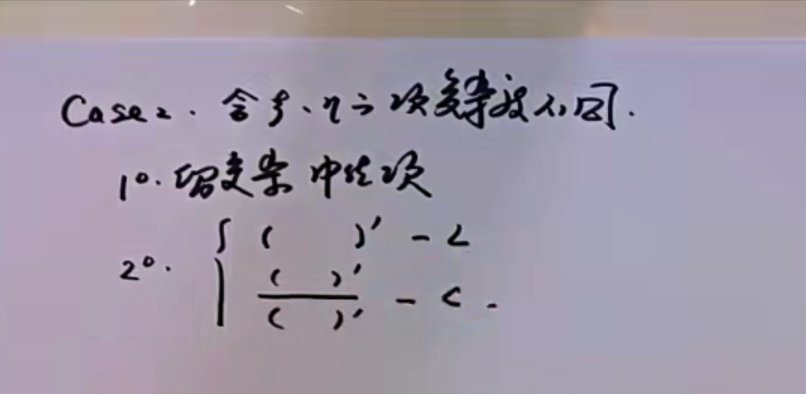 Case 2. 含ξ、η之项复杂度不同.
1°. 留复杂 中值项
2°. { ( )' - L
( )' / ( )' - C.